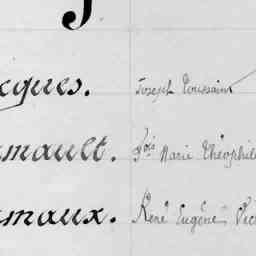 J
cques. Joseph Toussaint
mault. Fois Marie Théophile
maux. René Eugène Vict